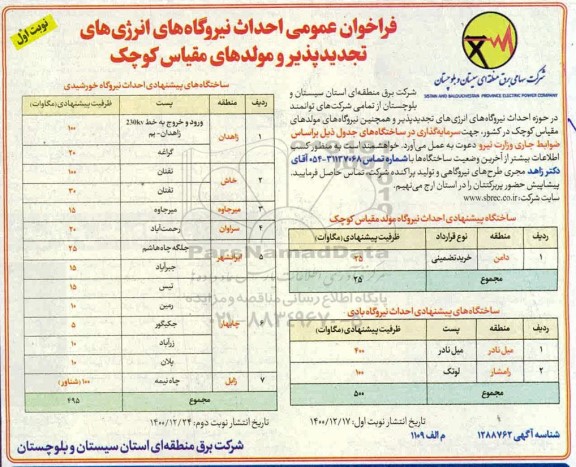 نوبت اول
فراخوان عمومی احداث نیروگاه‌های انرژی‌های
تجدیدپذیر و مولدهای مقیاس کوچک
شرکت سهامی برق منطقه‌ای سیستان و بلوچستان
SISTAN AND BALOUCHESTAN PROVINCE ELECTRIC POWER COMPANY
شرکت برق منطقه‌ای استان سیستان و
بلوچستان از تمامی شرکت‌های توانمند
در حوزه احداث نیروگاه‌های انرژی‌های تجدیدپذیر و همچنین نیروگاه‌های مولدهای
مقیاس کوچک در کشور، جهت سرمایه‌گذاری در ساختگاه‌های جدول ذیل براساس
ضوابط جاری وزارت نیرو دعوت به عمل می‌آورد. خواهشمند است به منظور کسب
اطلاعات بیشتر از آخرین وضعیت ساختگاه‌ها با شماره تماس ۳۱۱۳۷۰۶۸-۰۵۴ آقای
دکتر زاهد مجری طرح‌های نیروگاهی و تولید پراکنده شرکت، تماس حاصل فرمایید.
پیشاپیش حضور پربرکتتان را در استان ارج می‌نهیم.
سایت شرکت: www.sbrec.co.ir
ساختگاه پیشنهادی احداث نیروگاه مولد مقیاس کوچک
ردیف منطقه نوع قرارداد ظرفیت پیشنهادی (مگاوات)
۱ دامن خرید تضمینی ۲۵
مجموع ۲۵
ساختگاه‌های پیشنهادی احداث نیروگاه بادی
ردیف منطقه پست ظرفیت پیشنهادی (مگاوات)
۱ میل نادر میل نادر ۴۰۰
۲ رامشار لوتک ۱۰۰
مجموع ۵۰۰
ساختگاه‌های پیشنهادی احداث نیروگاه خورشیدی
ردیف منطقه پست ظرفیت پیشنهادی (مگاوات)
۱ زاهدان ورود و خروج به خط 230kv زاهدان- بم ۱۰۰
گزاغه ۲۰
۲ خاش تفتان ۱۰۰
تفتان ۳۰
۳ میرجاوه میرجاوه ۱۵
۴ سراوان رحمت‌آباد ۲۰
۵ ایرانشهر جلگه چاه‌هاشم ۲۵
جیرآباد ۱۵
۶ چابهار تیس ۱۵
رمین ۱۰
جکیگور ۵
زرآباد ۱۰
پلان ۱۰
۷ زابل چاه نیمه ۱۰۰ (شناور)
مجموع ۴۹۵
تاریخ انتشار نوبت اول: ۱۴۰۰/۱۲/۱۷
تاریخ انتشار نوبت دوم: ۱۴۰۰/۱۲/۲۴
شناسه آگهی ۱۲۸۸۷۶۲
م الف ۱۱۰۹
شرکت برق منطقه‌ای استان سیستان و بلوچستان
ParsNamadData
پایگاه اطلاع رسانی مناقصه و مزایده
۰۲۱-۸۸۳۴۹۶۷۰